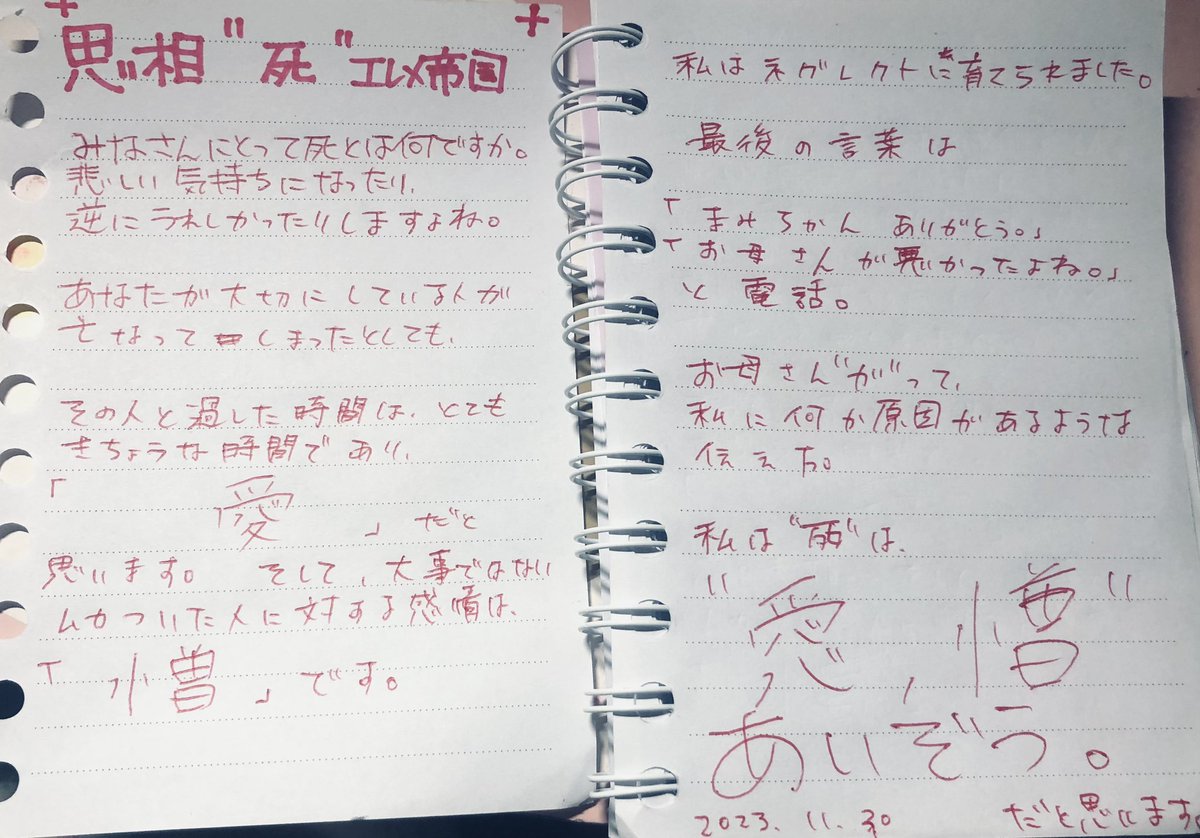 思相"死"エレメ帝国
みなさんにとって死とは何ですか。
悲しい気持ちになったり、
逆にうれしかったりしますよね。
あなたが大切にしている人が
亡なってしまったとしても、
その人と過した時間は、とても
きちょうな時間であり、
「愛」だと
思います。そして、大事ではない
ムカついた人に対する感情は、
「憎」です。
私はネグレクトに育てられました。
最後の言葉は
「まみろかん ありがとう。」
「お母さんが悪かったよね。」
と電話。
お母さん"が"って、
私に何か原因があるような
伝え方。
私は"死"は、
"愛,憎"
あいぞう。
2023.11.30 だと思います